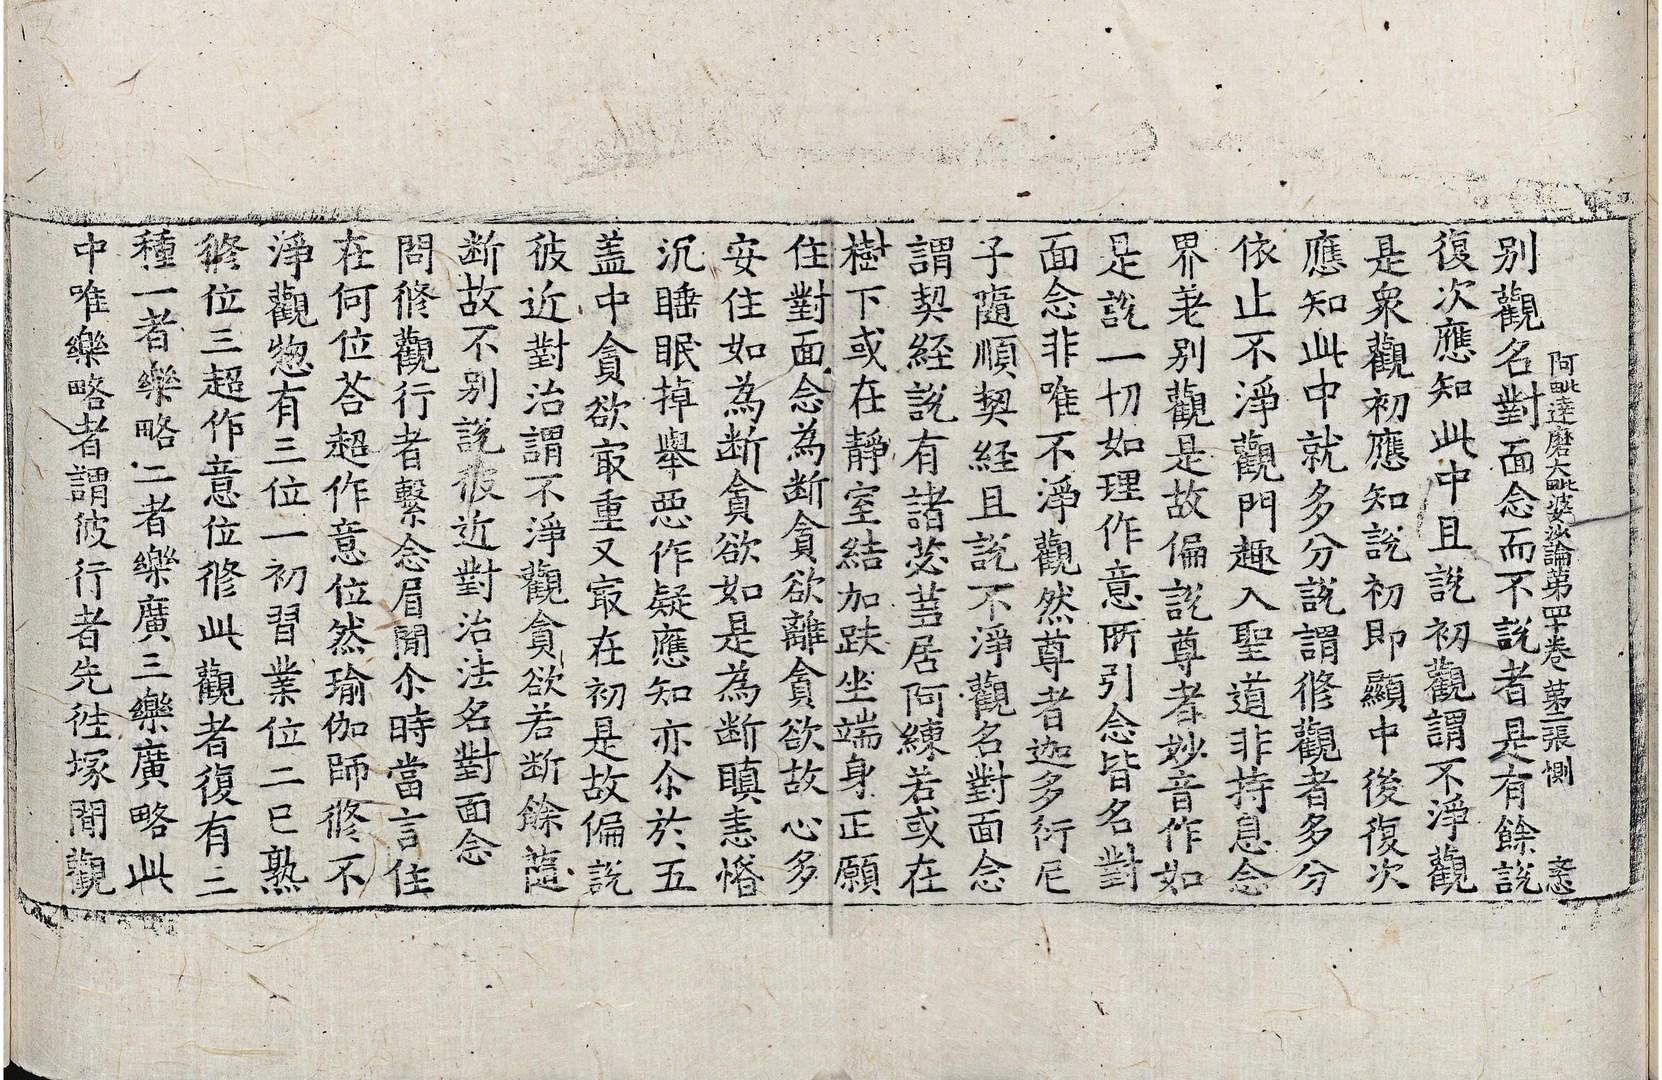 阿毗達磨大毗婆沙論第四十卷 第二張 惻
别觀名對面念而不說者是有餘說
復次應知此中且說初觀謂不淨觀
是衆觀初應知說初即顯中後復次
應知此中就多分說謂修觀者多分
依止不淨觀門趣入聖道非持息念
界差别觀是故偏說尊者妙音作如
是說一切如理作意所引念皆名對
面念非唯不淨觀然尊者迦多衍尼
子隨順契經且說不淨觀名對面念
謂契經說有諸苾芻居阿練若或在
樹下或在靜室結加趺坐端身正願
住對面念為断貪欲離貪欲故心多
安住如為断貪欲如是為断瞋恚惛
沉睡眠掉舉惡作疑應知亦尒於五
盖中貪欲㝡重又㝡在初是故偏說
彼近對治謂不淨觀貪欲若断餘蓋
断故不别說彼近對治法名對面念
問修觀行者繫念眉間尒時當言住
在何位荅超作意位然瑜伽師修不
淨觀惣有三位一初習業位二已熟
修位三超作意位修此觀者復有三
種一者樂略二者樂廣三樂廣略此
中唯樂略者謂彼行者先徃塚間觀